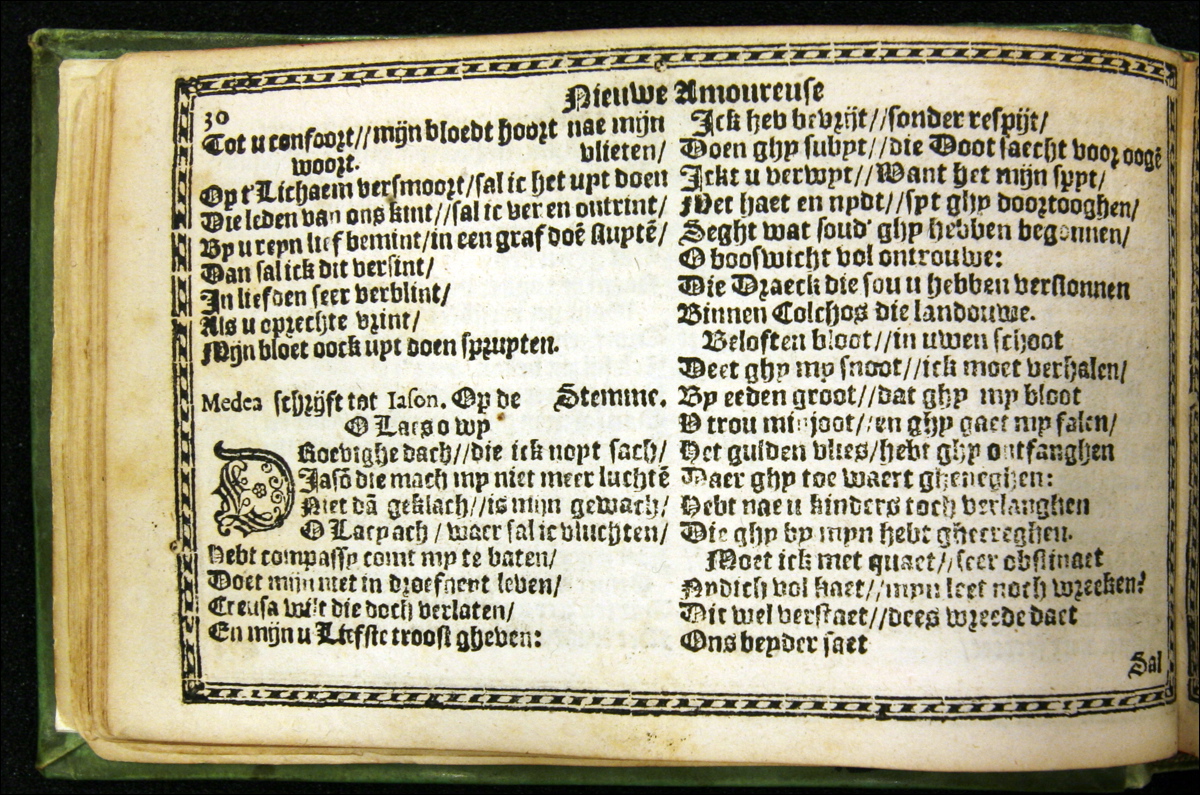 Nieuwe Amoureuse
30
Tot u confoort//mijn bloedt hoort nae mijn
woort. vlieten/
Op t'Lichaem versmoort/sal ic het uyt doen
Die leden van ons kint//sal ic ver en ontrint/
By u reyn lief bemint/in een graf doē sluytē/
Dan sal ick dit versint/
In liefden seer verblint/
Als u oprechte vrint/
Mijn bloet oock uyt doen spruyten.
Medea schrijft tot Iason. Op de Stemme.
O Laes o wy
DRoevighe dach//die ick noyt sach/
Jasō die mach my niet meer luchtē
Niet dā geklach//is mijn gewach/
O Lacy ach / waer sal ic vluchten/
Hebt compassy comt my te baten/
Doet mijn niet in droefheyt leven/
Creusa wilt die doch verlaten/
En mijn u Liefste troost gheven:
Ick heb bevrijt//sonder respijt/
Doen ghy subyt//die Doot saecht voor oogē
Ickt u verwyt//Want het mijn spyt/
Met haet en nydt//syt ghy doortooghen/
Seght wat soud' ghy hebben begonnen/
O booswicht vol ontrouwe:
Die Draeck die sou u hebben verslonnen
Binnen Colchos die landouwe.
Beloften bloot//in uwen schoot
Deet ghy my snoot//ick moet verhalen/
By eeden groot//dat ghy my bloot
U trou minjoot//en ghy gaet my falen/
Het gulden vlies/hebt ghy ontfanghen
Daer ghy toe waert gheneghen:
Hebt nae u kinders toch verlanghen
Die ghy by myn hebt ghecreghen.
Moet ick met quaet//seer obstinaet
Nydich vol haet//myn leet noch wreeken?
Dit wel verstaet//dees wreede daet
Ons beyder saet
Sal